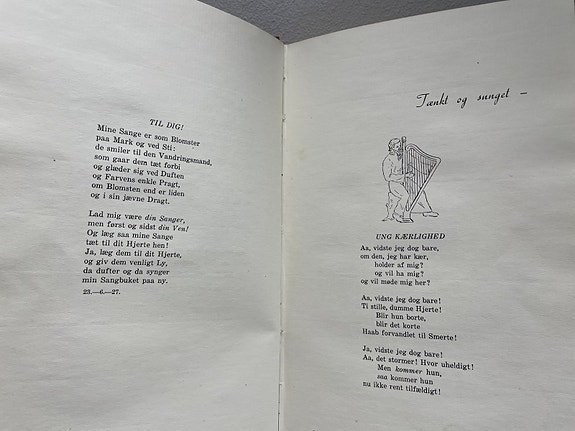 TIL DIG!
Mine Sange er som Blomster
paa Mark og ved Sti:
de smiler til den Vandringsmand,
som gaar dem tæt forbi
og glæder sig ved Duften
og Farvens enkle Pragt,
om Blomsten end er liden
og i sin jævne Dragt.
Lad mig være din Sanger,
men først og sidst din Ven!
Og læg saa mine Sange
tæt til dit Hjerte hen!
Ja, læg dem til dit Hjerte,
og giv dem venligt Ly,
da dufter og da synger
min Sangbuket paa ny.
23.—6.—27.
Tænkt og sunget —
UNG KÆRLIGHED
Aa, vidste jeg dog bare,
om den, jeg har kær,
holder af mig?
og vil ha mig?
og vil møde mig her?
Aa, vidste jeg dog bare!
Ti stille, dumme Hjerte!
Blir hun borte,
blir det korte
Haab forvandlet til Smerte!
Ja, vidste jeg dog bare!
Aa, det stormer! Hvor uheldigt!
Men kommer hun,
saa kommer hun
nu ikke rent tilfældigt!